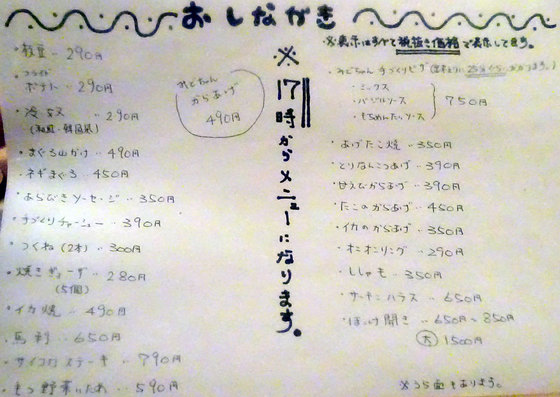 おしながき
※表示はすべて税抜き価格で表示してます。
※17時からメニューになります。
・枝豆 ‥ 290円
・フライドポテト ‥ 290円
・冷奴 ‥ 290円
・まぐろ山かけ ‥ 490円
・ネギまぐろ ‥ 450円
・あらびきソーセージ ‥ 350円
・手づくりチャーシュー ‥ 390円
・つくね(2本) ‥ 300円
・焼きギョーザ ‥ 280円
(5個)
・イカ焼 ‥ 490円
・馬刺 ‥ 650円
・サイコロステーキ ‥ 790円
590円
みどちゃん
からあげ
490円
・みどちゃん手づくりピザ
・ミックス
・バジルソース
・もちめんたいソース
750円
・あげたこ焼 ‥ 350円
・とりなんこつあげ ‥ 390円
・甘えびからあげ ‥ 390円
・たこのからあげ ‥ 450円
・イカのからあげ ‥ 350円
・オニオンリング ‥ 290円
・ししゃも ‥ 350円
・サーモンハラス ‥ 650円
・ほっけ開き ‥ 650円〜850円
大 1500円
※うら面もあります。